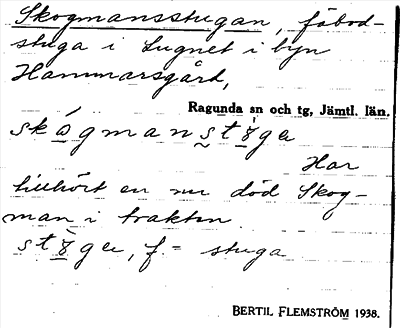 Skogmansstugan, fäbod-
stuga i Lugnet i byn
Hammarsgård,
Ragunda sn och tg, Jämtl. län.
skógmanstɤga
Har
tillhört en nu död Skog-
man i trakten
stɤ̀ga, f. = stuga
BERTIL FLEMSTRÖM 1938.